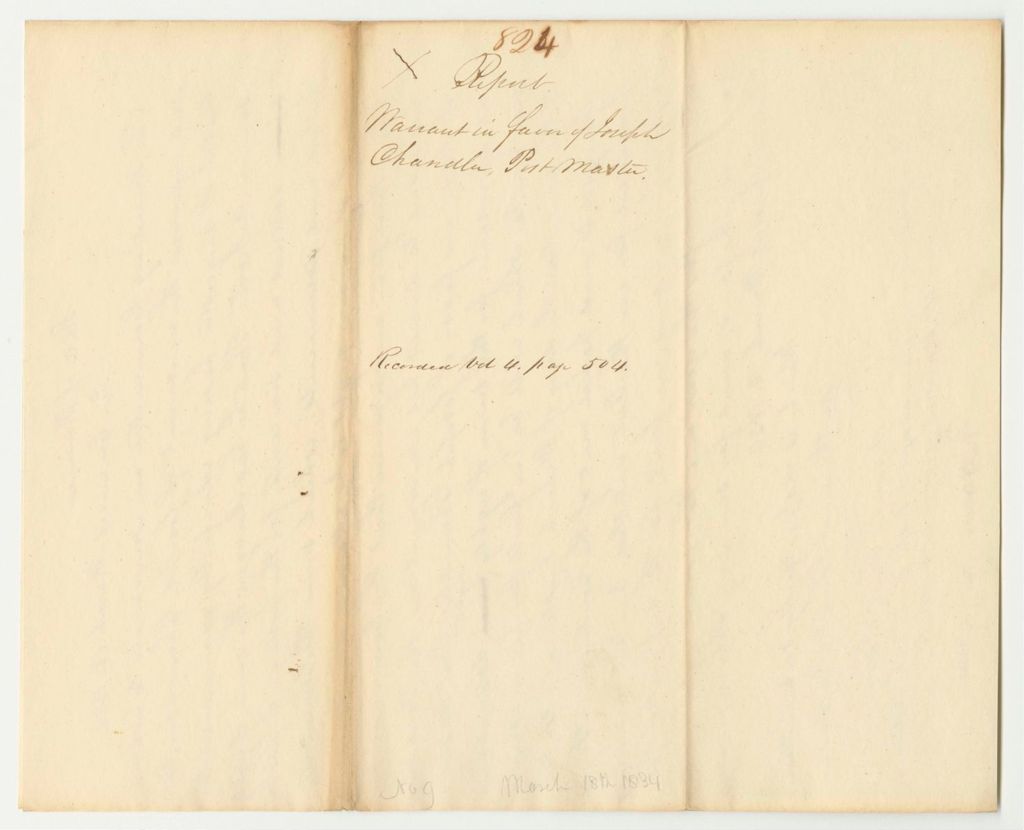 824
X Report.
Warrant in favor of Joseph
Chandler, Post Master.
Recorded Vol 4. page 504.
No 9 March 18th 1834